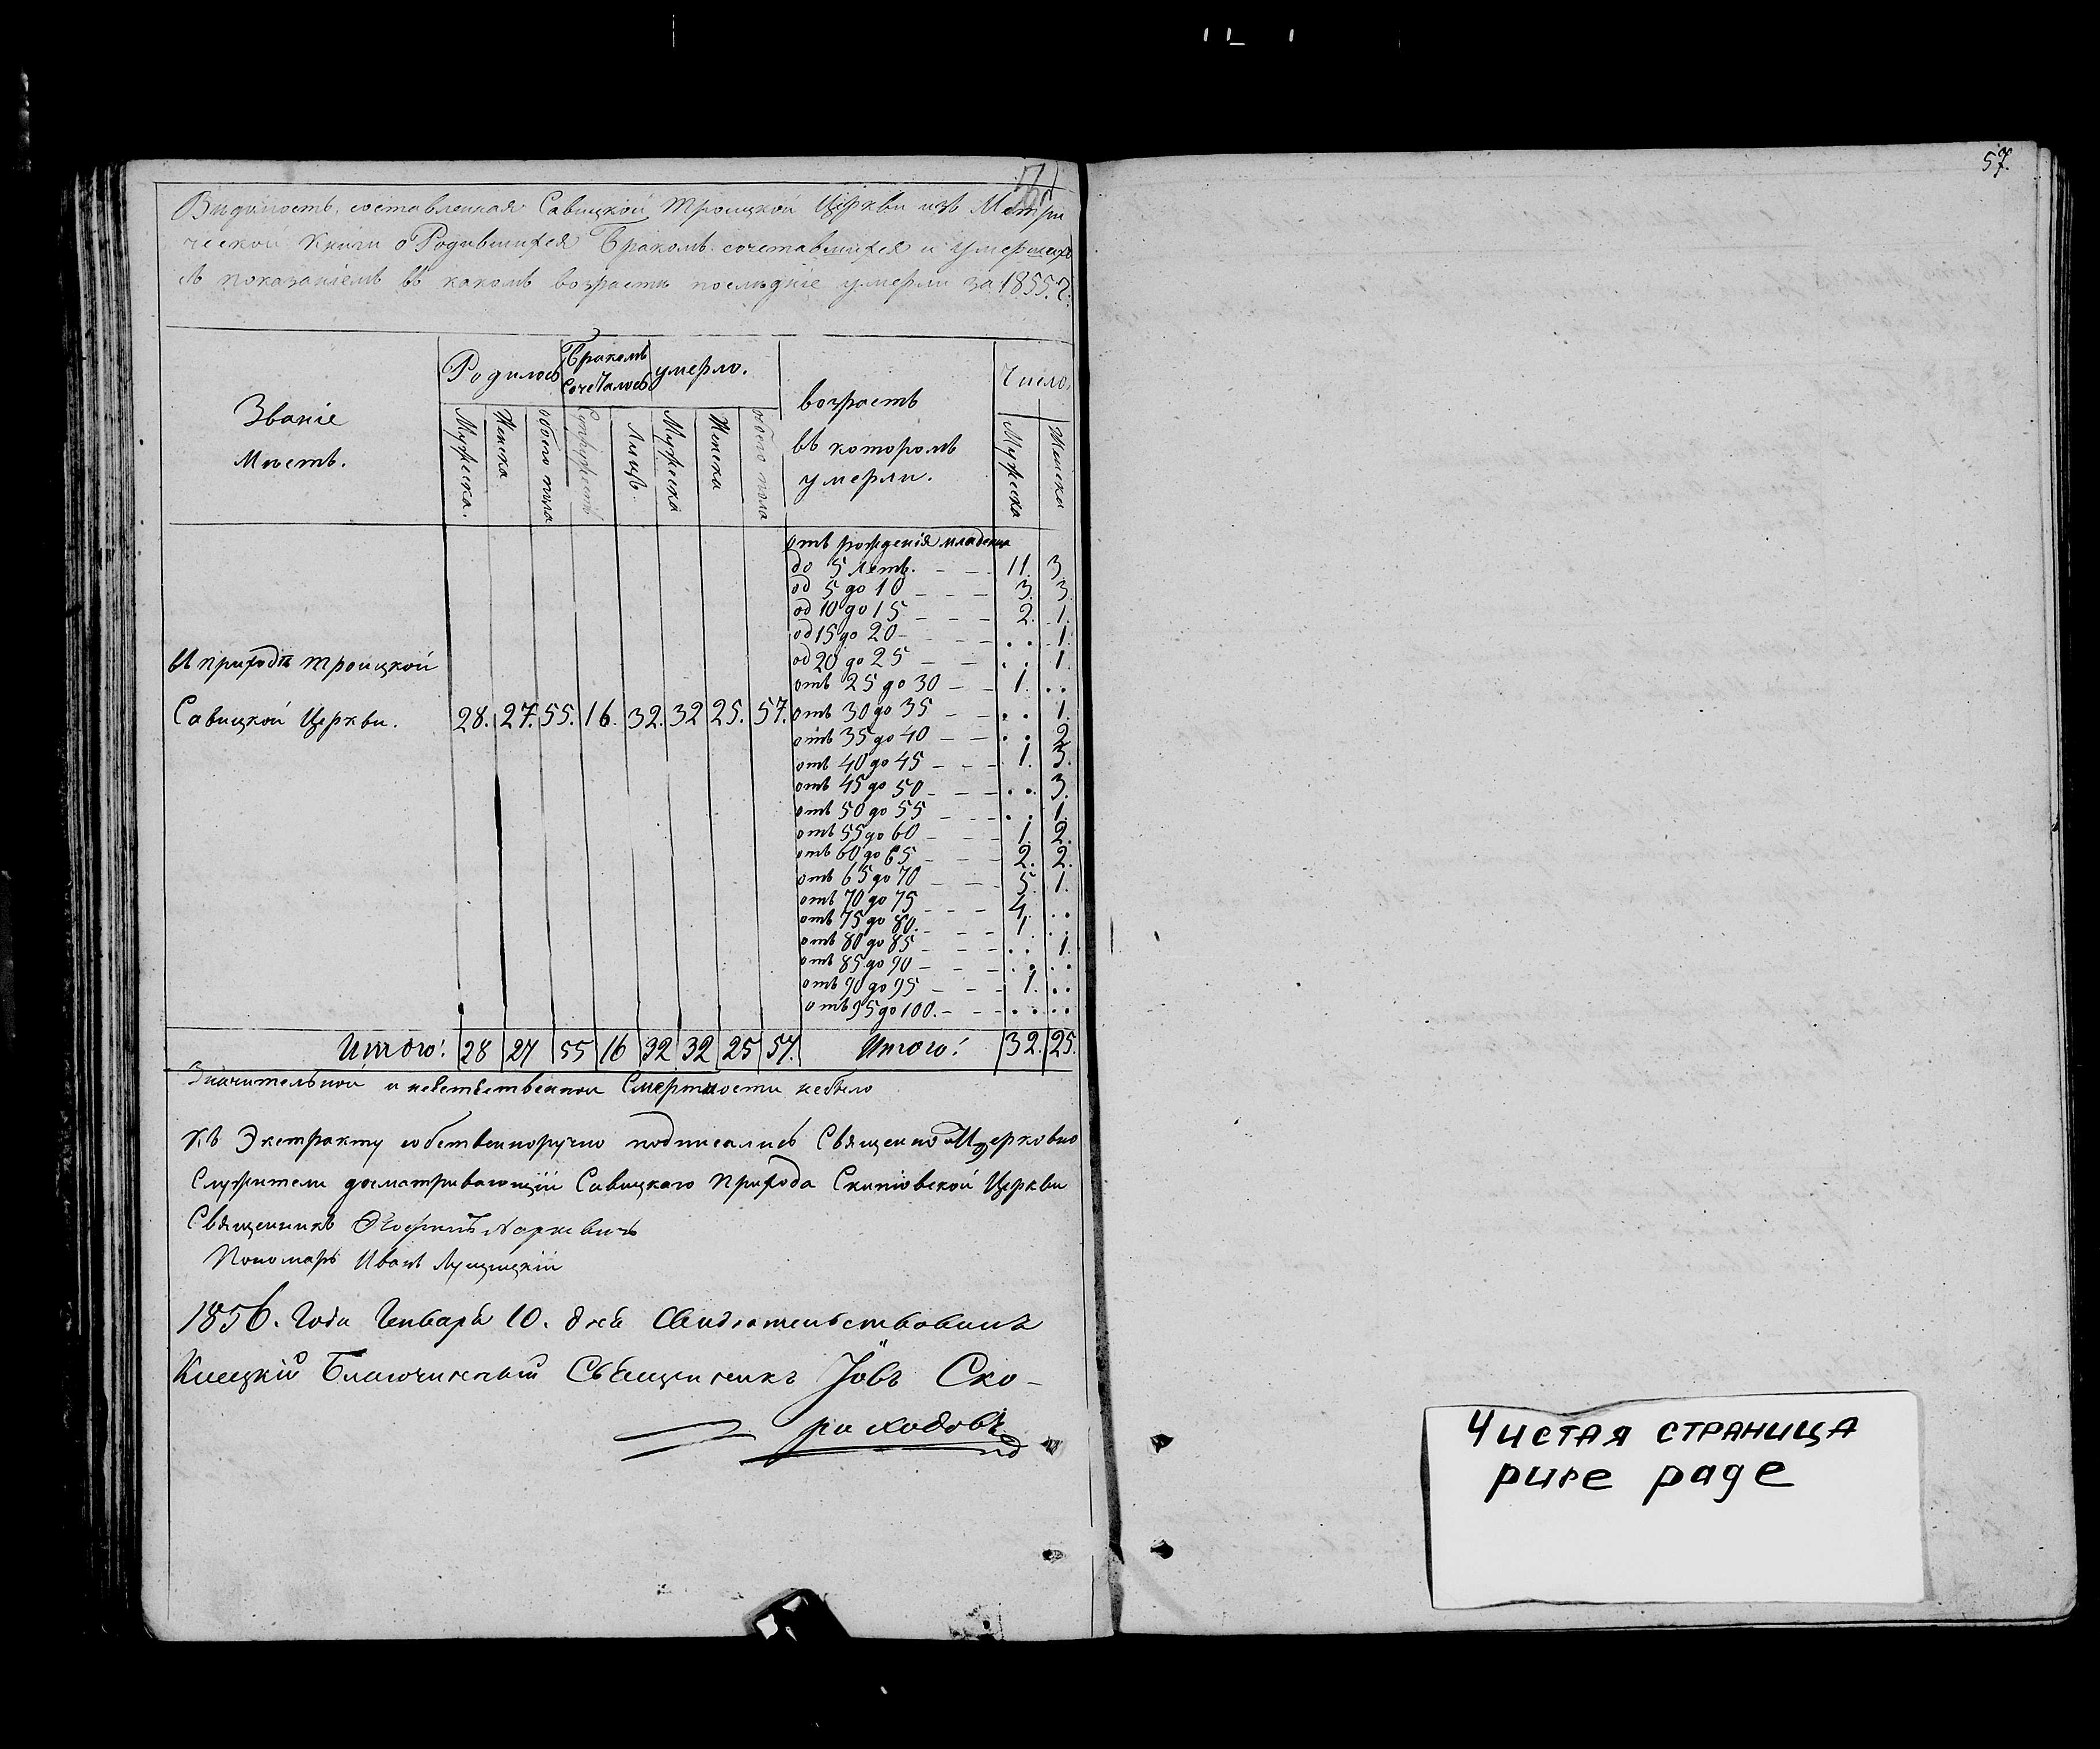 57.
Видомость, составленная Савицкой Троицкой Церкви изъ Метри
ческой Книги о Родившихся Бракомъ сочетавшихся и умершихъ
съ показаніемъ въ какомъ возрасть последніе умерли за 1855. г.
Званіе
Мѣстъ.
Родилось
Бракомъ
Сочеталось
умерло.
возрастъ
въ которомъ
умерли.
Число.
Мужеска.
Женска
обоего пола
Супружествъ
Лицъ.
Мужеска
Женска
обоего пола
Мужеска
Женска
отъ рожденія младенца
до 5 летъ. - - 11. 3.
од 5 до 10 - - - 3. 3.
од 10 до 15 - - - 2. 1.
од 15 до 20 - - - . . 1.
од 20 до 25 - - . . 1.
отъ 25 до 30 - - 1. . .
В приходѣ троицкой
Савицкой Церкви. 28. 27. 55. 16. 32. 32 25. 57.
отъ 30 до 35 - - . . 1.
отъ 35 до 40 - - . . 2
отъ 40 до 45 - - - 1. 3.
отъ 45 до 50 - - - . . 3.
отъ 50 до 55 - - - . . 1.
отъ 55 до 60 - - - 1 2.
отъ 60 до 65 - - - 2. 2.
отъ 65 до 70 - - - 5. 1.
отъ 70 до 75 - - - 4. . .
отъ 75 до 80. - - - 1. . .
отъ 80 до 85 - - - . . 1.
отъ 85 до 90 - - - . . . .
отъ 90 до 95 - - - 1. . .
отъ 95 до 100. - - - . . . .
Итого: 28 27 55 16 32 32 25 57. Итого: 32. 25.
Значительной и неестественной Смертности небыло
Къ Экстракту собственноручно подписались Священно и Церковно
Служители досматривающій Савицкаго прихода Скипіовской Церкви
Священникъ
Пономарь Иванъ Лущицкій
1856. Года Генваря 10. дня Свидетельствовалъ
Клецкій Благочинный Священникъ Іовъ Ско-
риходовъ
Чистая страница
pure page